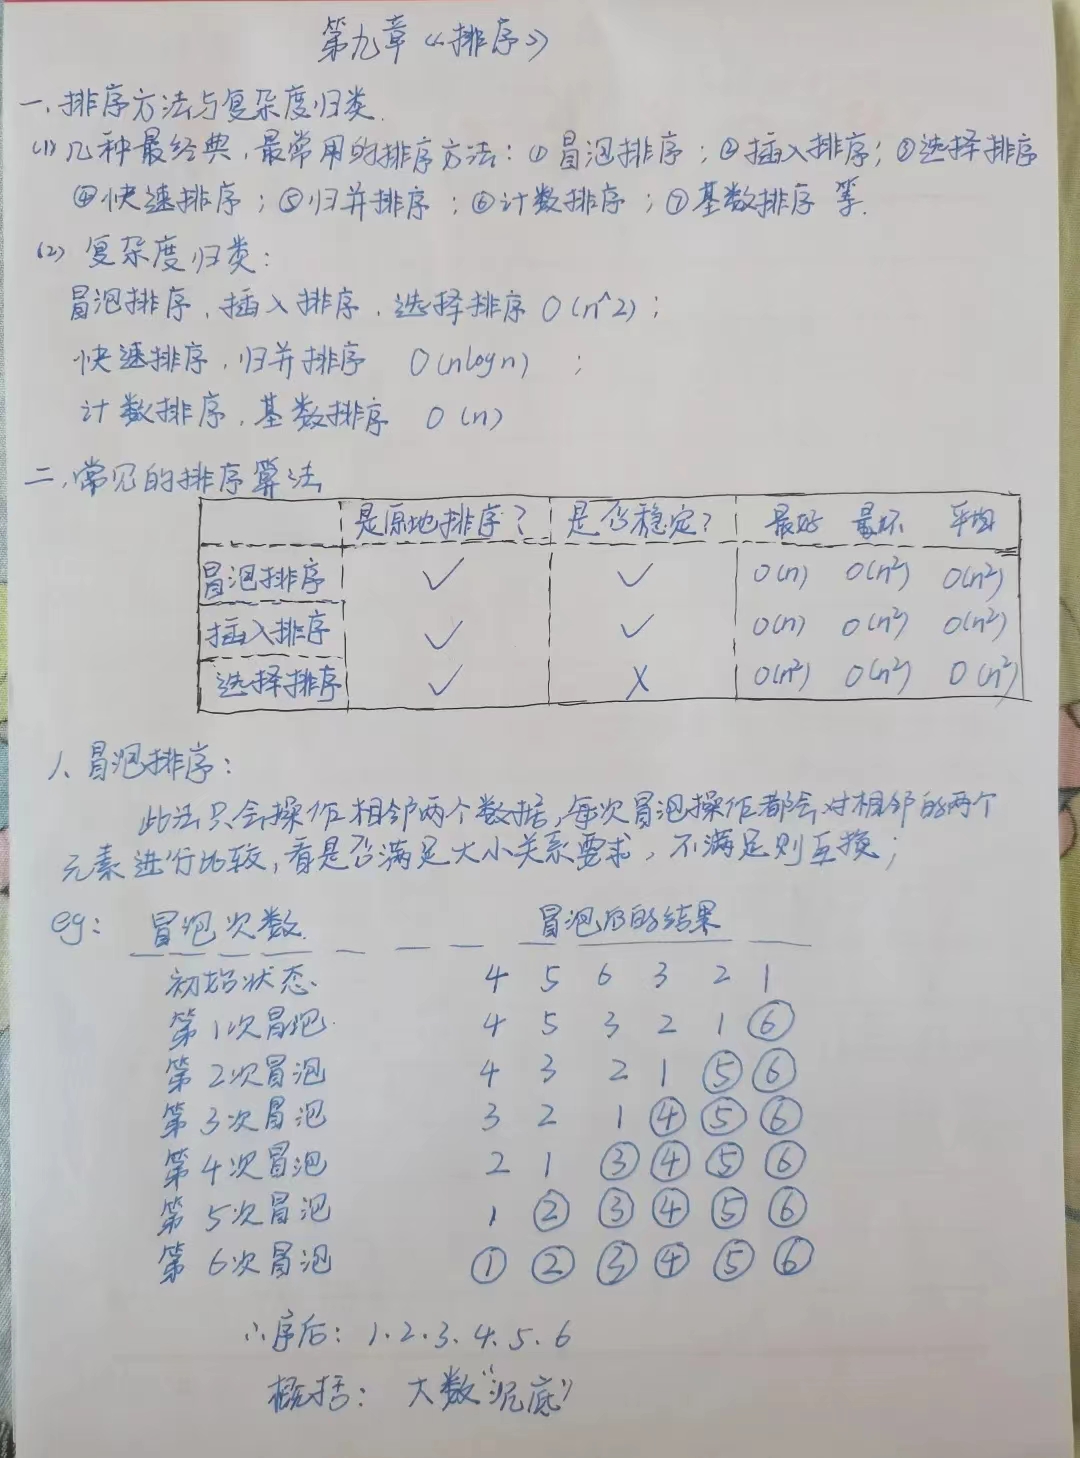 第九章《排序》
一、排序方法与复杂度归类.
(1) 几种最经典,最常用的排序方法: ①冒泡排序; ②插入排序; ③选择排序
④快速排序; ⑤归并排序; ⑥计数排序; ⑦基数排序 等.
(2) 复杂度归类:
冒泡排序,插入排序,选择排序 O(n^2);
快速排序,归并排序 O(nlogn) ;
计数排序,基数排序 O(n)
二.常见的排序算法
是原地排序? 是否稳定? 最好 最坏 平均
冒泡排序 ✓ ✓ O(n) O(n²) O(n²)
插入排序 ✓ ✓ O(n) O(n²) O(n²)
选择排序 ✓ X O(n²) O(n²) O(n²)
1、冒泡排序:
此法只会操作相邻两个数据,每次冒泡操作都会对相邻的两个
元素进行比较,看是否满足大小关系要求,不满足则互换;
eg: 冒泡次数 冒泡后的结果
初始状态 4 5 6 3 2 1
第1次冒泡 4 5 3 2 1 ⑥
第2次冒泡 4 3 2 1 ⑤ ⑥
第3次冒泡 3 2 1 ④ ⑤ ⑥
第4次冒泡 2 1 ③ ④ ⑤ ⑥
第5次冒泡 1 ② ③ ④ ⑤ ⑥
第6次冒泡 ① ② ③ ④ ⑤ ⑥
∴序后: 1.2.3.4.5.6
概括: 大数“沉底”